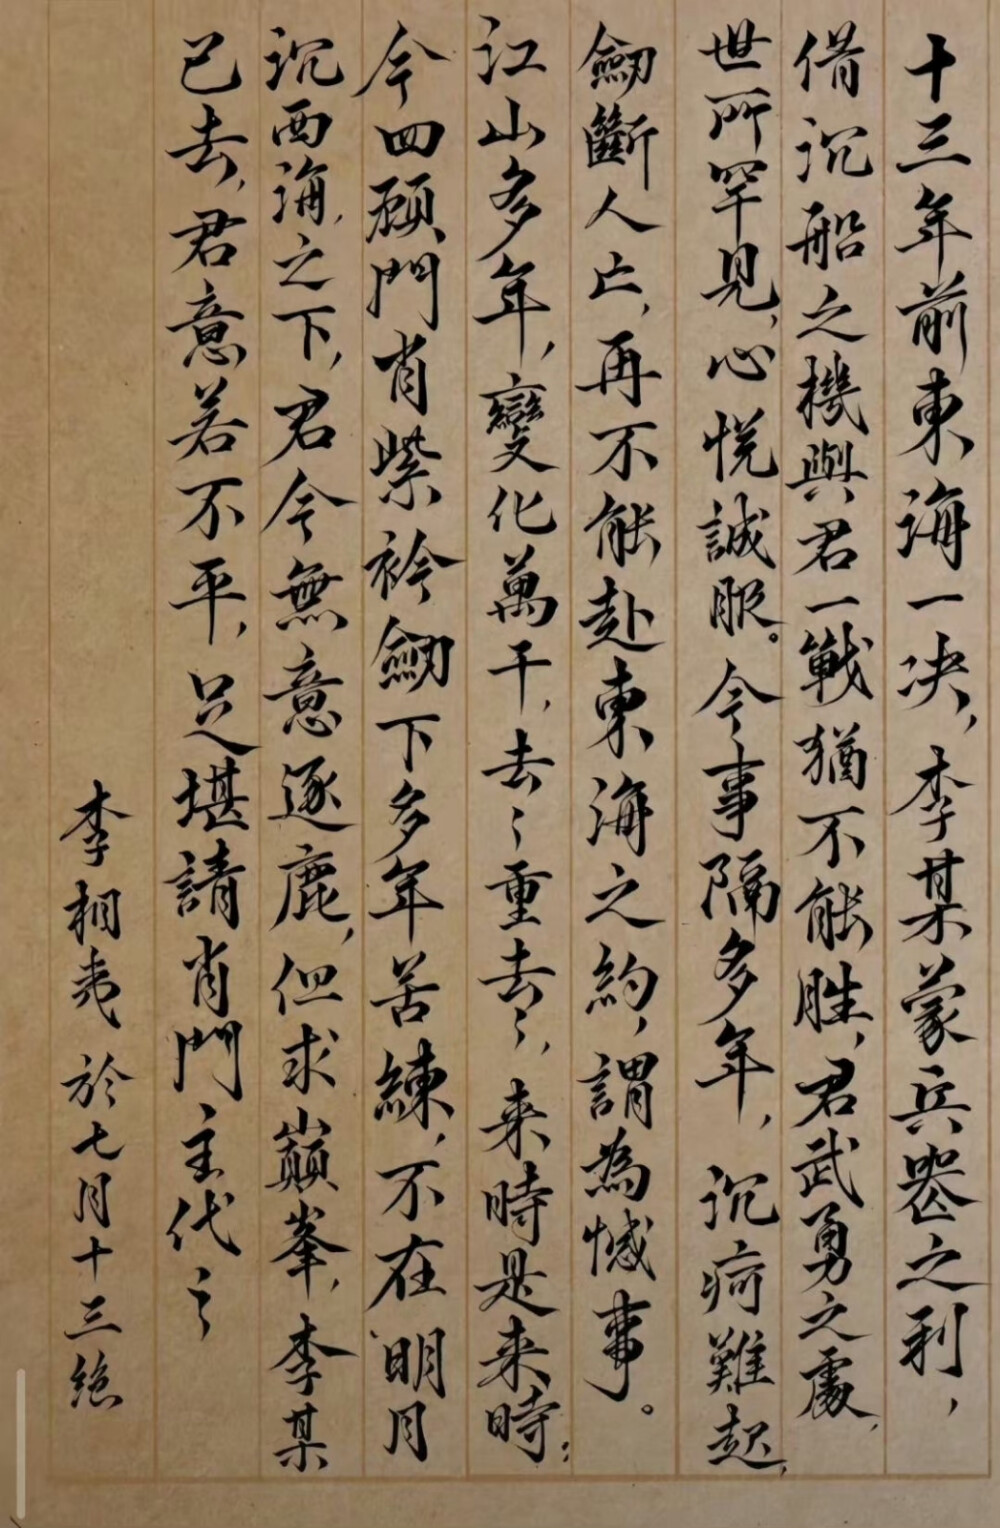 十三年前東海一决,李某蒙兵器之利,
借沉船之機與君一戰猶不能勝,君武勇之處,
世所罕見,心悦誠服。今事隔多年,沉疴難起,
劒斷人亡,再不能赴東海之約,謂為憾事。
江山多年,變化萬千,去〻重去〻,来時是来時;
今四顧門肖紫衿劒下多年苦練,不在明月
沉西海之下,君今無意逐鹿,但求巔峯,李某
已去,君意若不平,足堪請肖門主代之
李相夷於七月十三絶